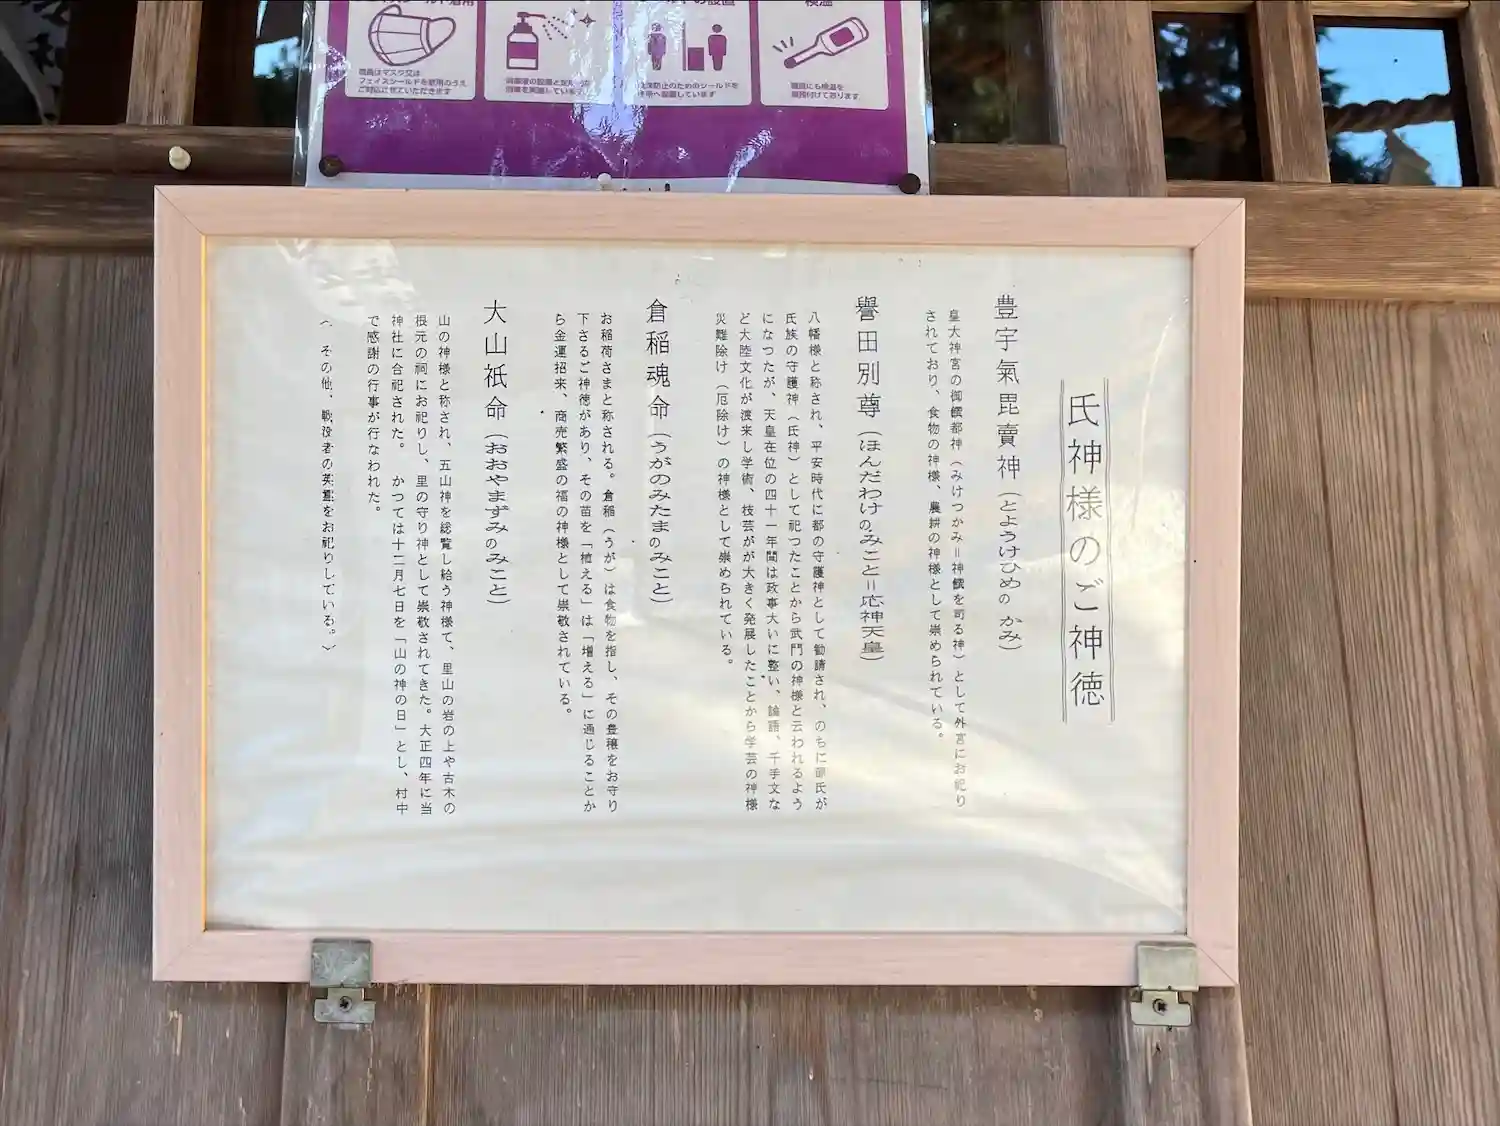 職員はマスク又は
フェイスシールドを着用のうえ
ご対応させていただきます
検温
職員にも検温を
義務付けております
氏神様のご神徳
豊宇氣毘賣神(とようけひめの かみ)
皇大神宮の御饌都神(みけつかみ＝神饌を司る神)として外宮にお祀り
されており、食物の神様、農耕の神様として崇められている。
譽田別尊(ほんだわけのみこと＝応神天皇)
八幡様と称され、平安時代に都の守護神として勧請され、のちに源氏が
氏族の守護神(氏神)として祀つたことから武門の神様と云われるよう
になつたが、天皇在位の四十一年間は政事大いに整い、論語、千手文な
ど大陸文化が渡来し学術、技芸がが大きく発展したことから学芸の神様
災難除け(厄除け)の神様として崇められている。
倉稲魂命(うがのみたまのみこと)
お稲荷さまと称される。倉稲(うが)は食物を指し、その豊穣をお守り
下さるご神徳があり、その苗を「植える」は「増える」に通じることか
ら金運招来、商売繁盛の福の神様として崇敬されている。
大山祇命(おおやまずみのみこと)
山の神様と称され、五山神を総覧し給う神様て、里山の岩の上や古木の
根元の祠にお祀りし、里の守り神として崇敬されてきた。大正四年に当
神社に合祀された。 かつては十二月七日を「山の神の日」とし、村中
で感謝の行事が行なわれた。
〈 その他、戦役者の英霊をお祀りしている。〉